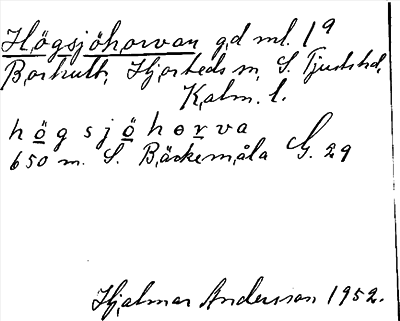 Högsjöhorvan gd ml. 19
Borhult, Hjorteds sn, S. Tjusts hd,
Kalm. l.
högsjöhorva
650 m. S. Bäckemåla G. 29
Hjalmar Andersson 1952.